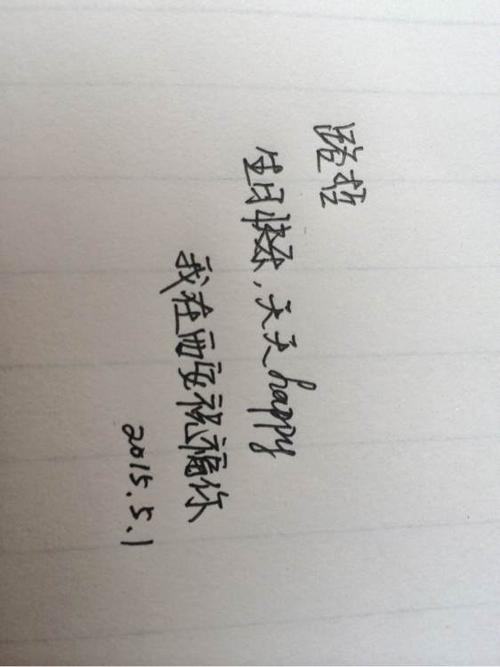 路哲
生日快乐,天天happy
我在西安祝福你
2015.5.1